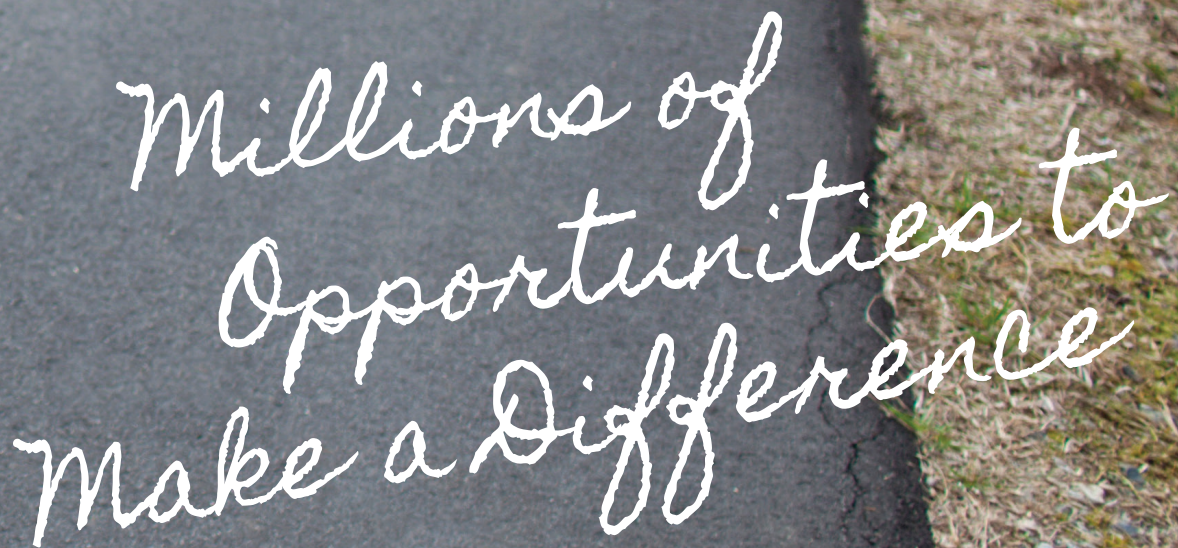 Millions of
Opportunities to
Make a Difference